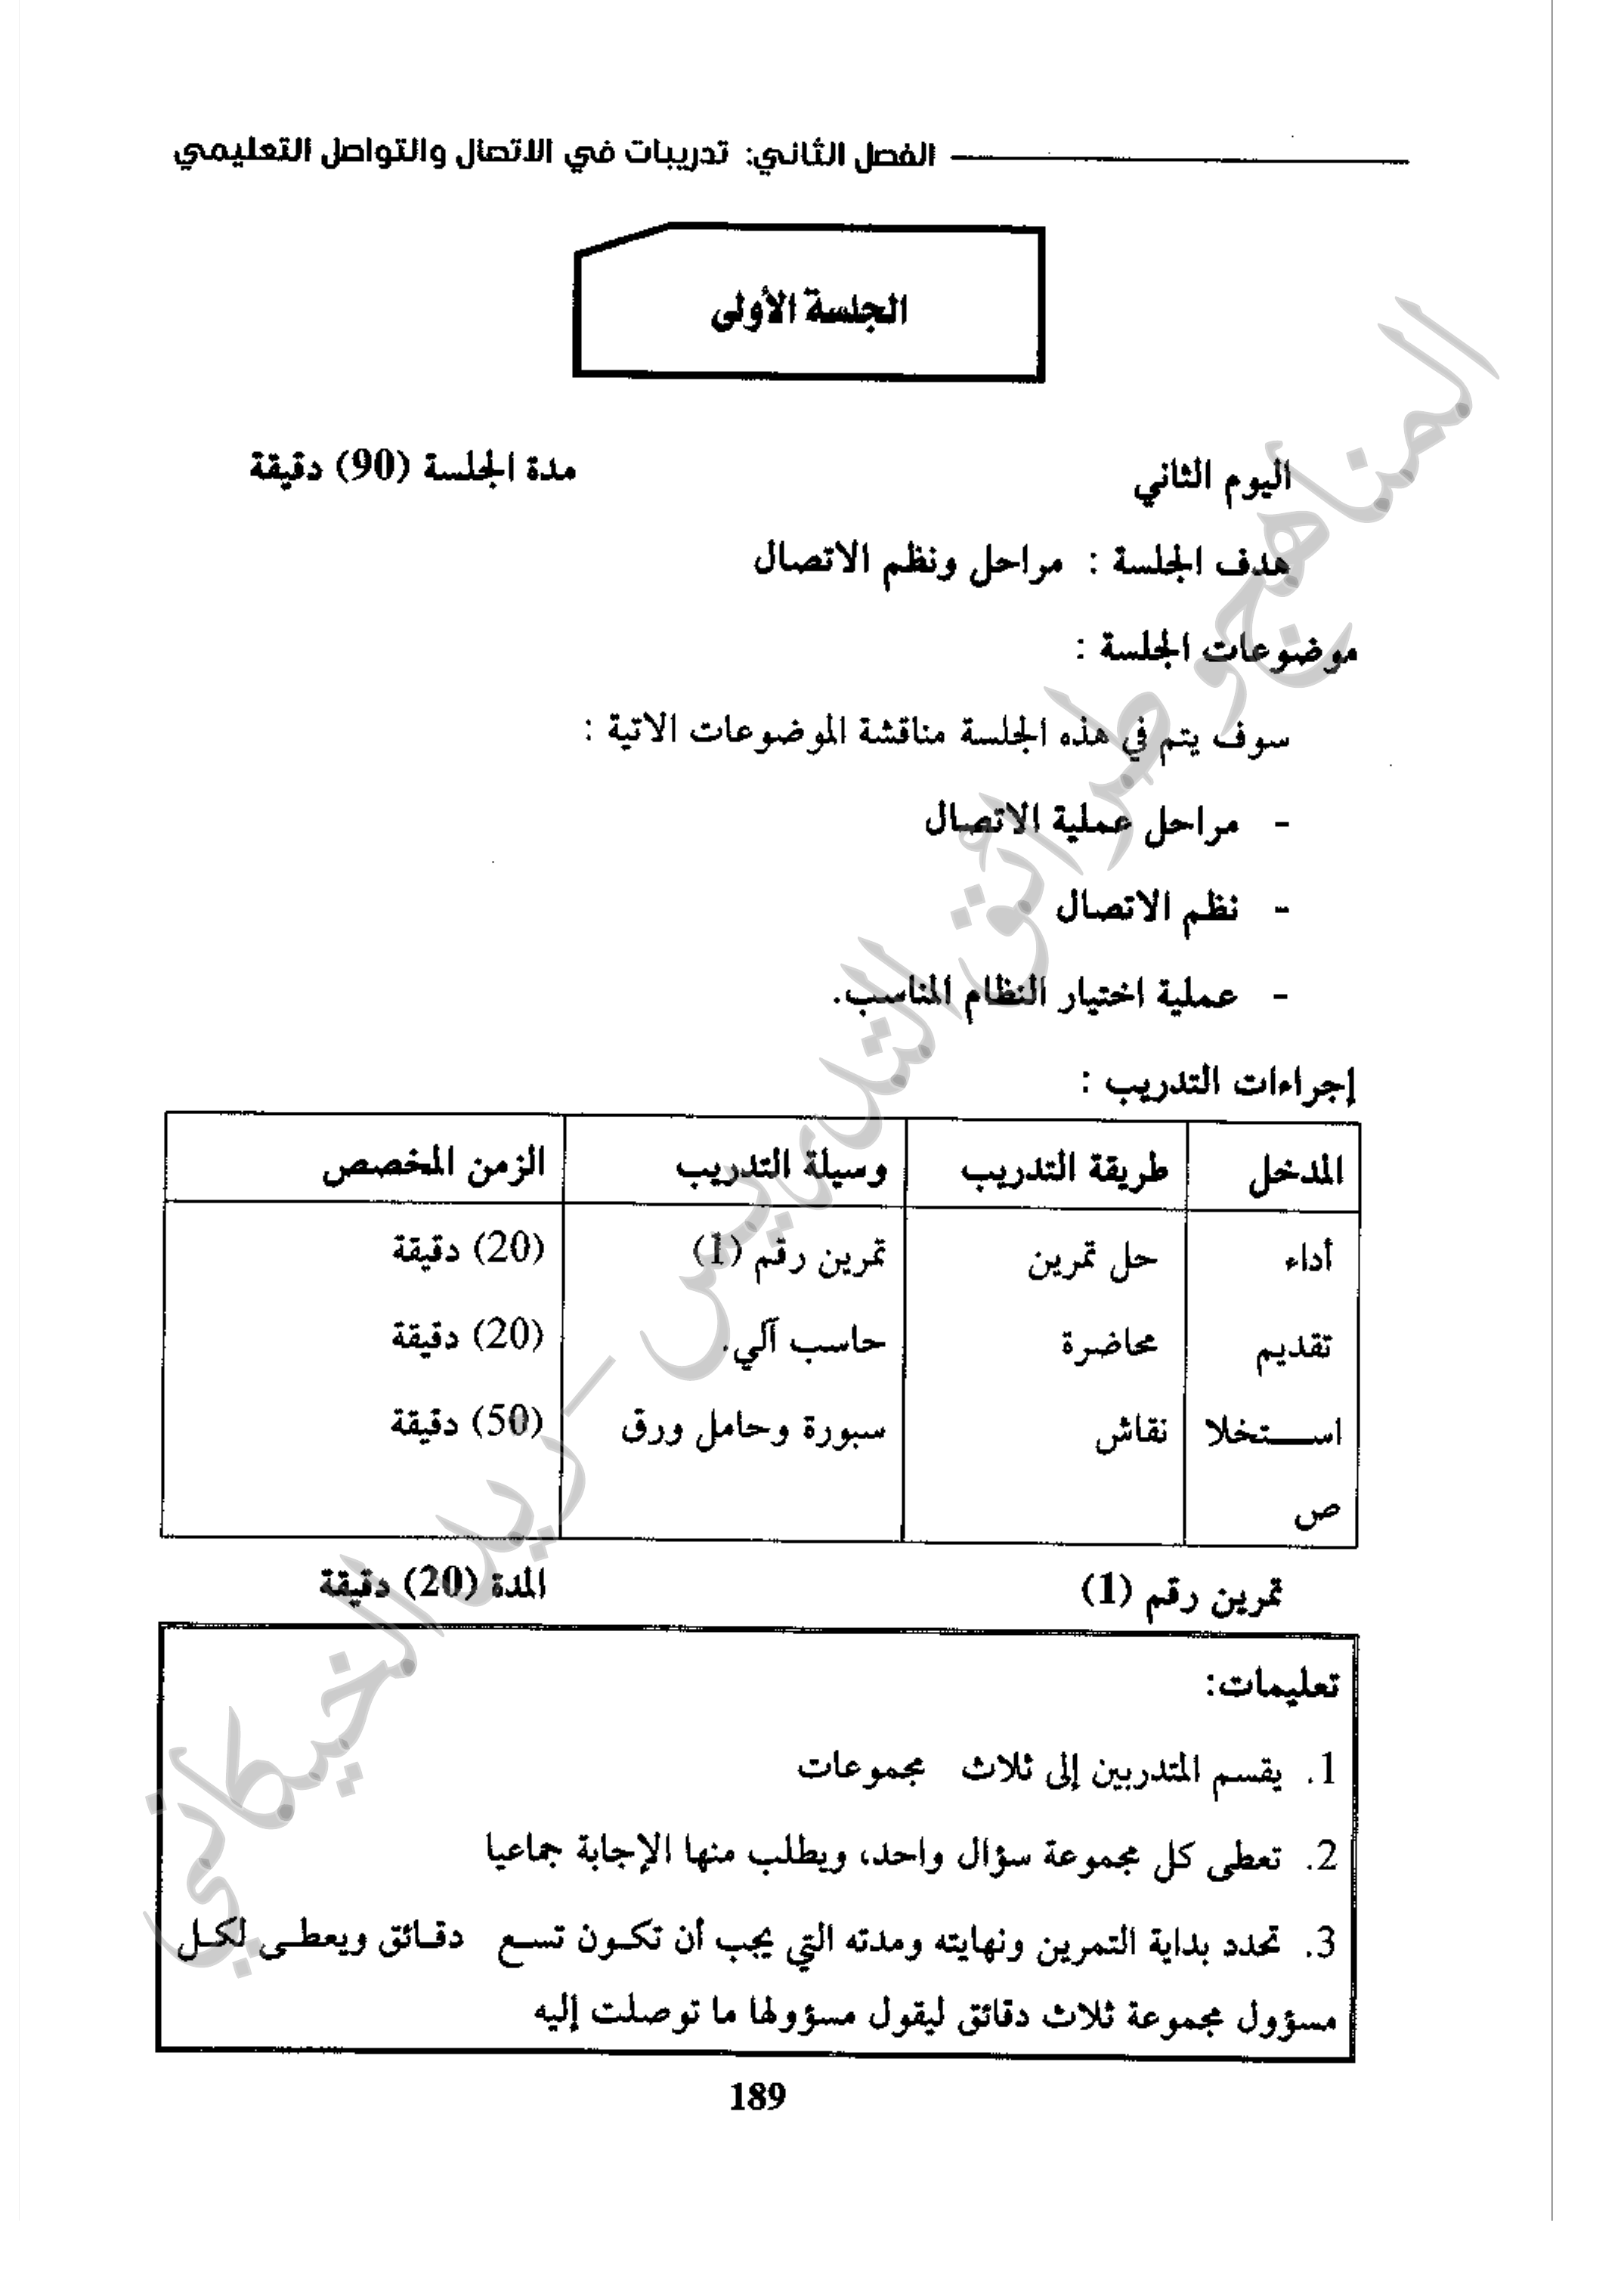 الفصل الثاني: تدريبات في الاتصال والتواصل التعليمي
الجلسة الأولى
اليوم الثاني مدة الجلسة (90) دقيقة
هدف الجلسة : مراحل ونظم الاتصال
موضوعات الجلسة :
سوف يتم في هذه الجلسة مناقشة الموضوعات الاتية :
- مراحل عملية الاتصال
- نظم الاتصال
- عملية اختيار النظام المناسب.
إجراءات التدريب :
المدخل طريقة التدريب وسيلة التدريب الزمن المخصص
أداء حل تمرين تمرين رقم (1) (20) دقيقة
تقديم محاضرة حاسب آلي. (20) دقيقة
اســـتخلا نقاش سبورة وحامل ورق (50) دقيقة
ص
تمرين رقم (1) المدة (20) دقيقة
تعليمات:
1. يقسم المتدربين إلى ثلاث مجموعات
2. تعطى كل مجموعة سؤال واحد، ويطلب منها الإجابة جماعيا
3. تحدد بداية التمرين ونهايته ومدته التي يجب أن تكـون تسـع دقـائق ويعطـى لكـل
مسؤول مجموعة ثلاث دقائق ليقول مسؤولها ما توصلت إليه
189
المناهج وطرائق التدريس - ريد الخيكاني